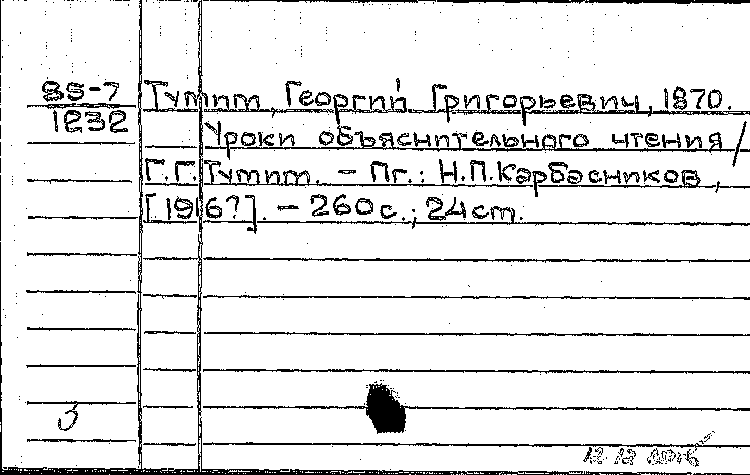 85-7 Тутыт, Георгий Григорьевич, 1870.
1232
Уроки объяснительного чтения /
Г.Г. Тутыт. — Пг.: Н.П. Карбасников,
[1916?]. — 260 с.; 24 ст.
3
12 12